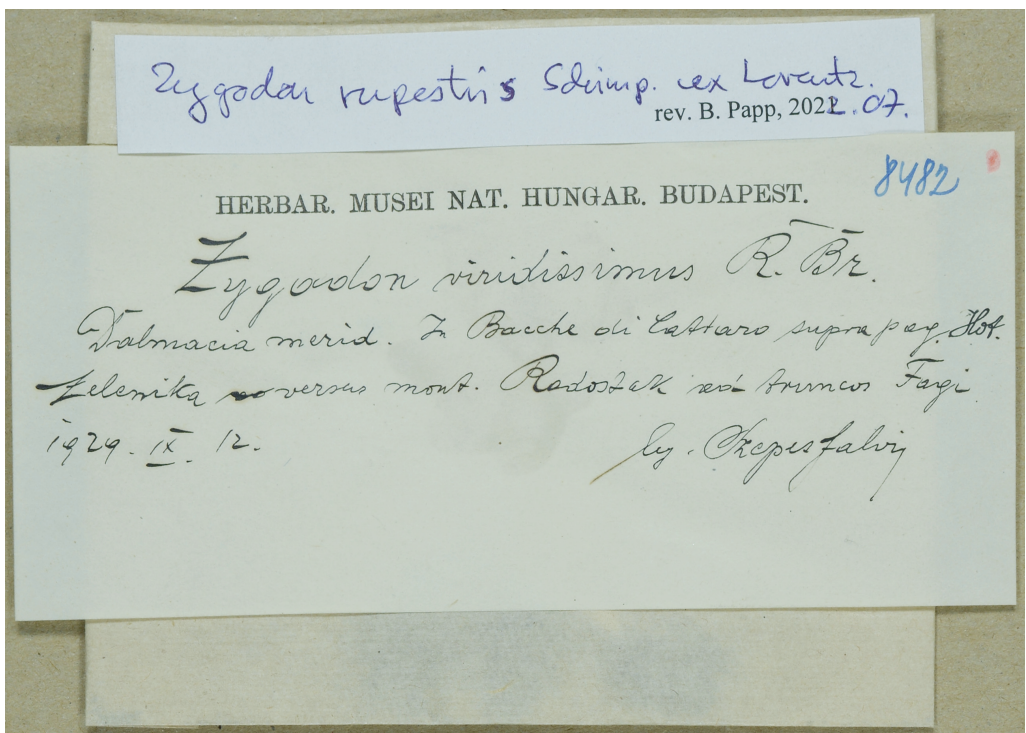 Zygodon rupestris Schimp. ex Lorentz.
rev. B. Papp, 2022.07.
8482
HERBAR. MUSEI NAT. HUNGAR. BUDAPEST.
Zygodon viridissimus R. Br.
Dalmacia merid. In Bocche di Cattaro supra pag. Hot.
Zelenika versus mont. Radostak ad truncos Fagi
1929. IX. 12.
leg. Szepesfalvy